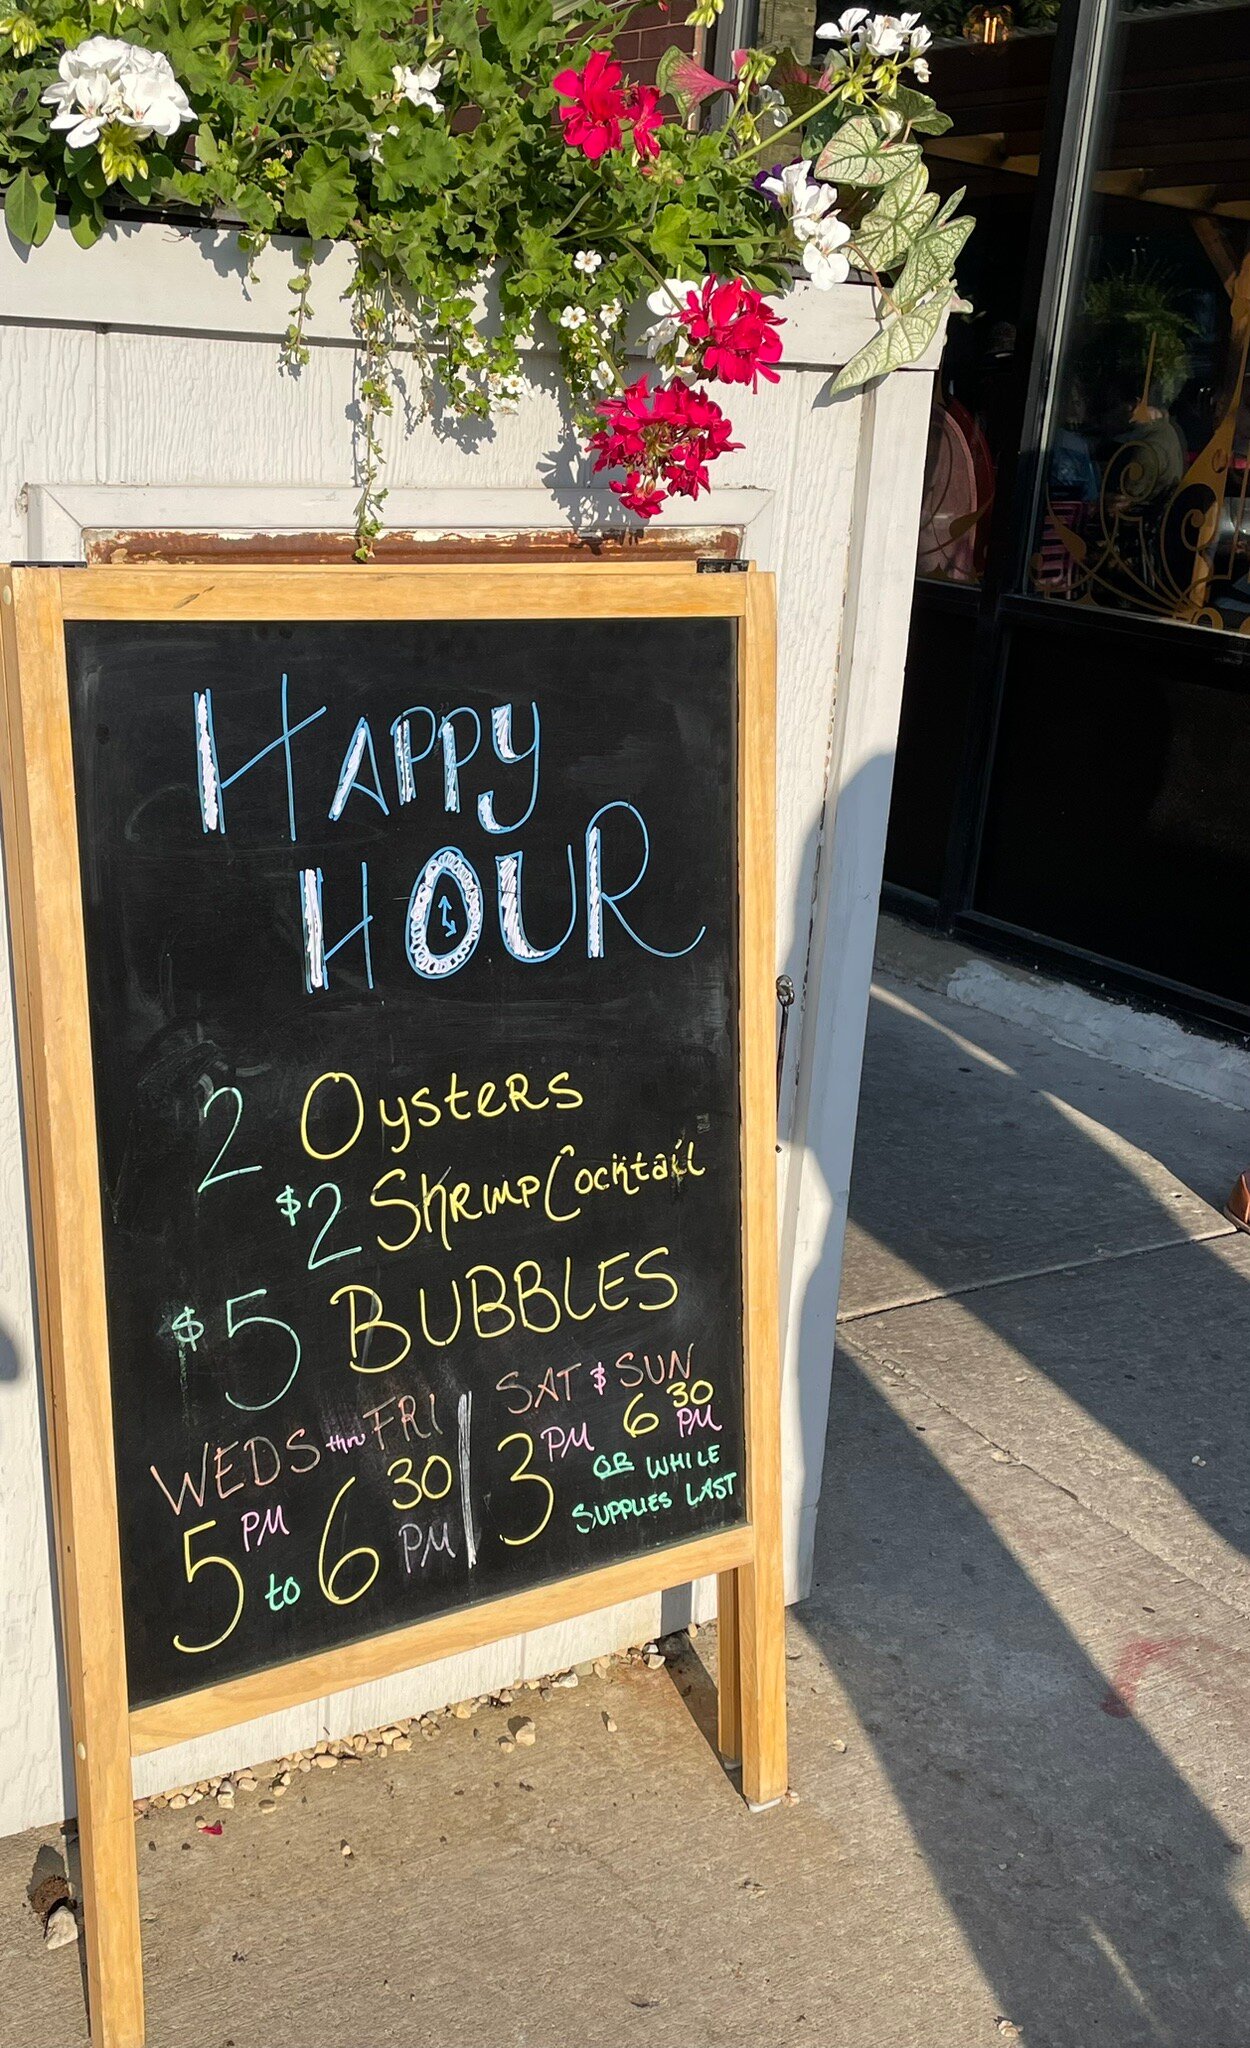 HAPPY
HOUR
2 Oysters
$2 Shrimp Cocktail
$5 BUBBLES
WEDS thru FRI
5 PM to 6 30 PM
SAT & SUN
3 PM 6 30 PM
OR WHILE
SUPPLIES LAST